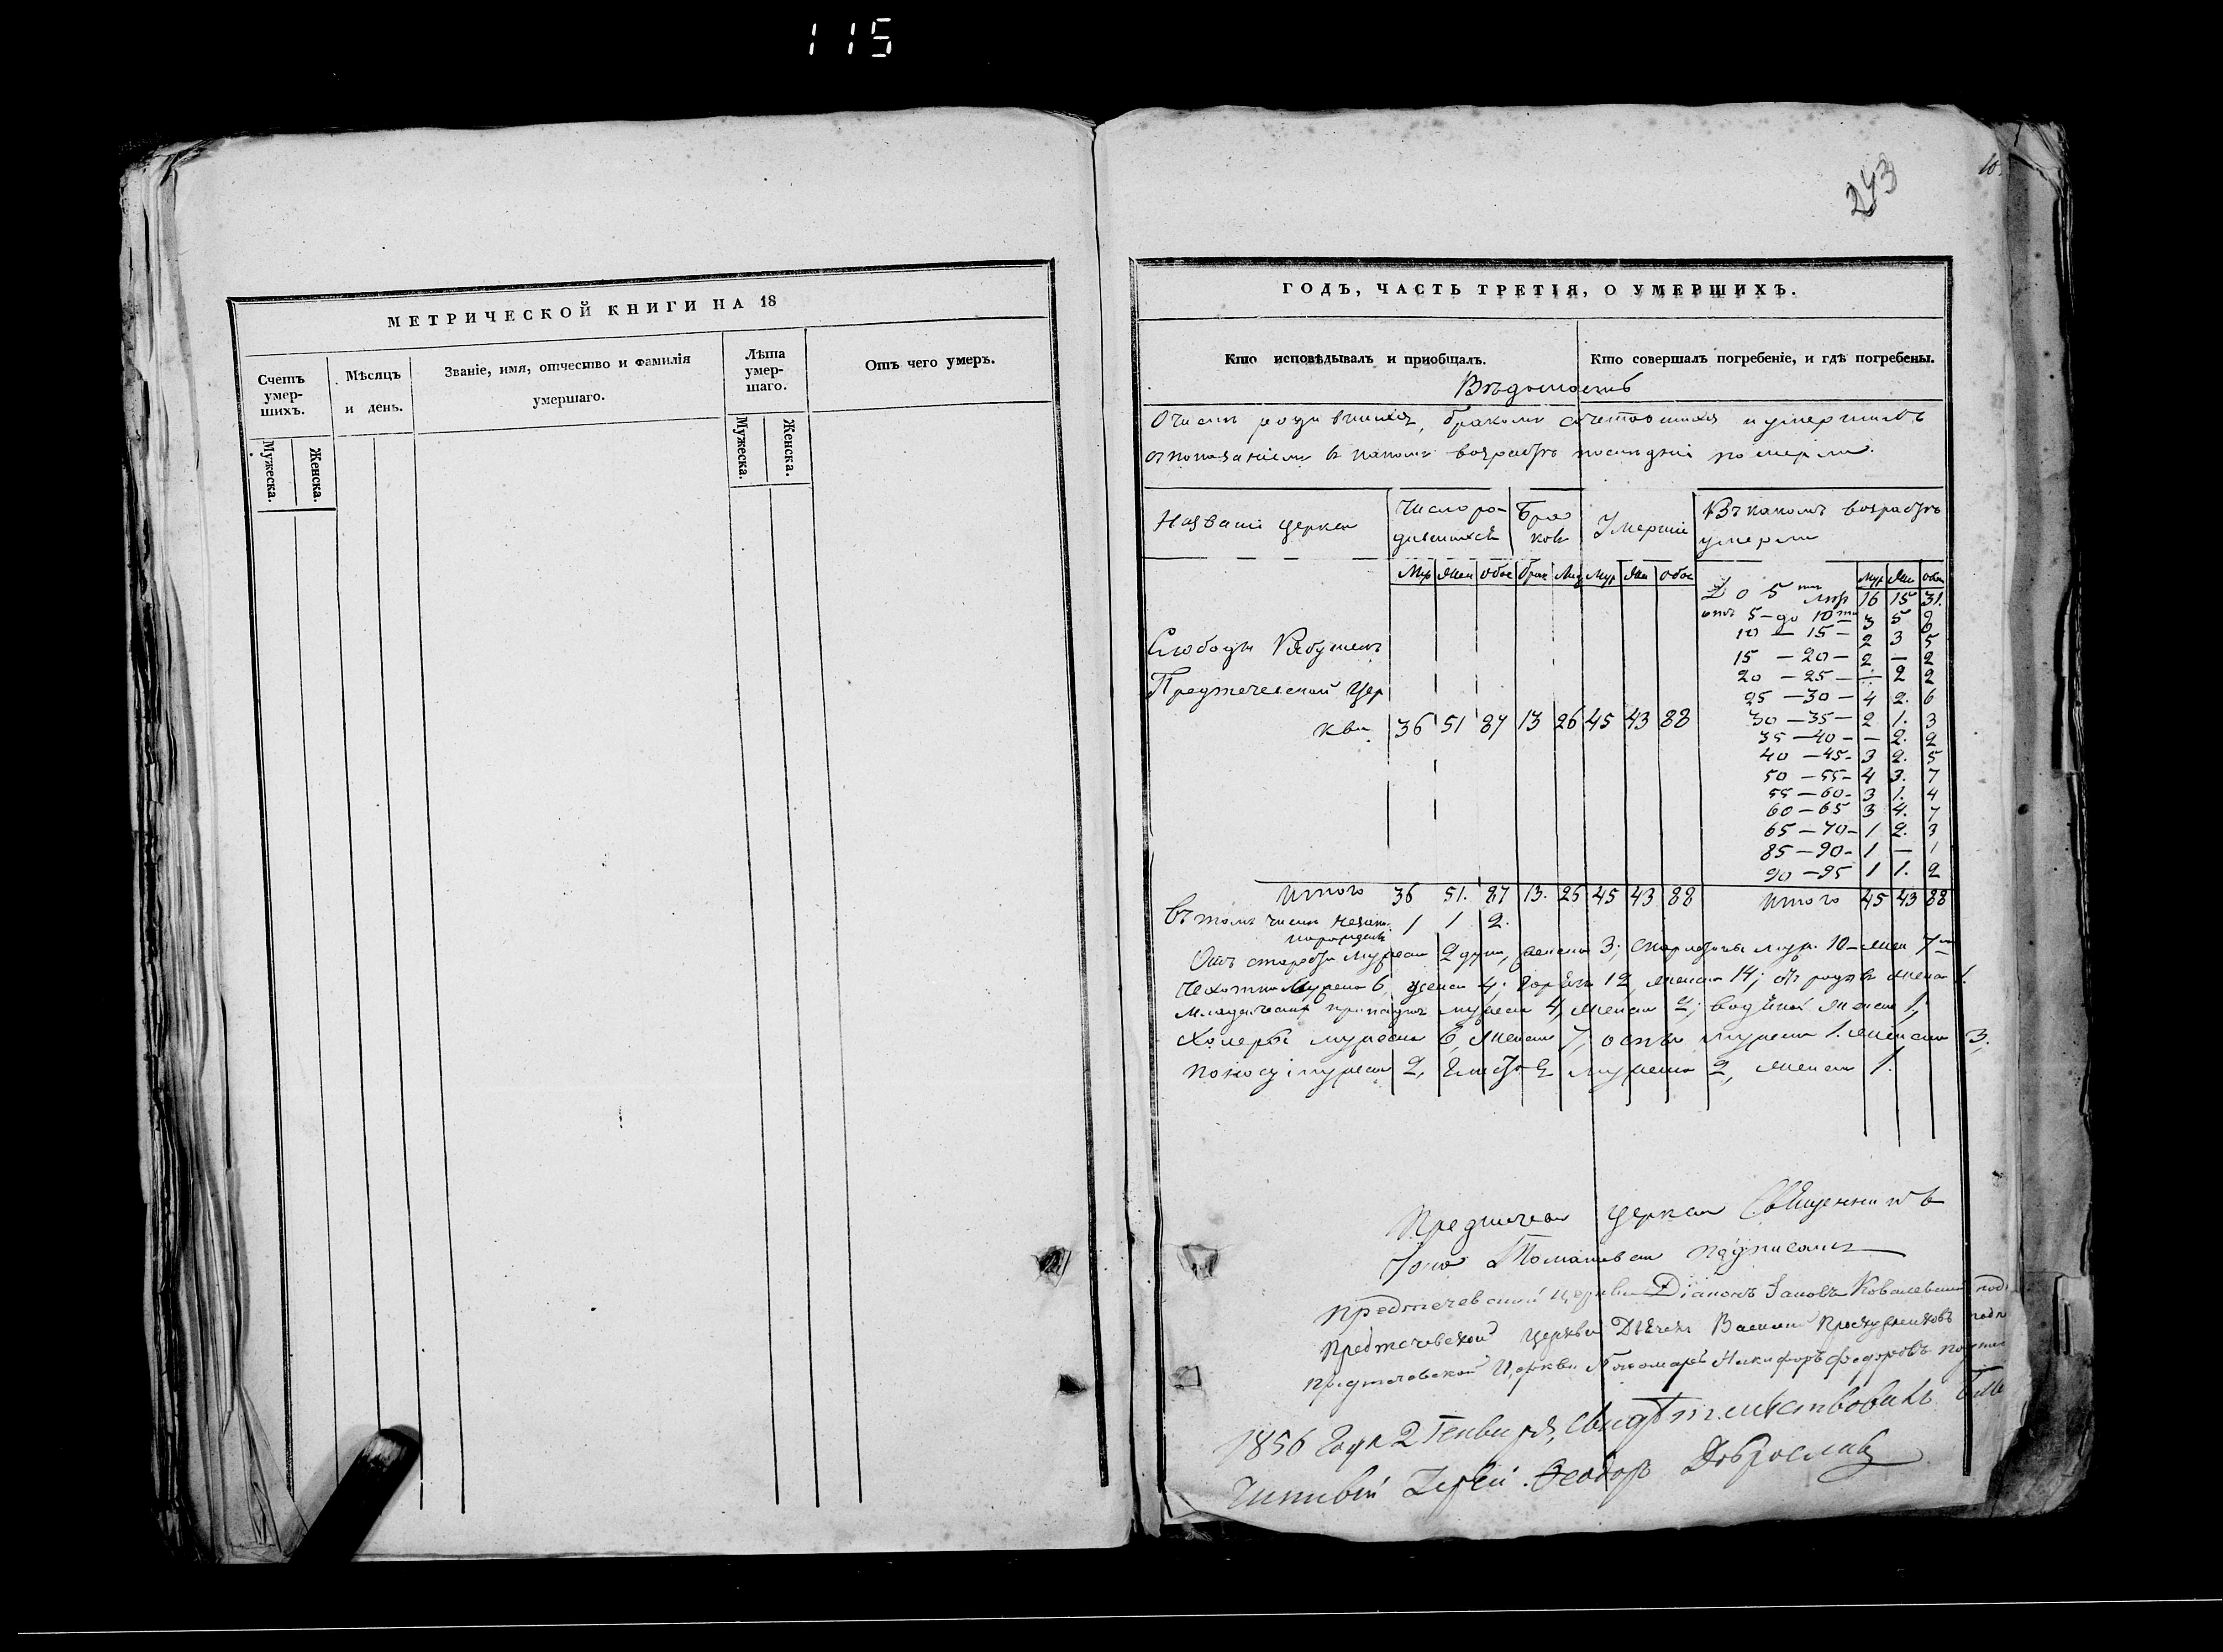 115
243
10
МЕТРИЧЕСКОЙ КНИГИ НА 18
Счетъ умер-шихъ.
Мѣсяцъ и день.
Званіе, имя, отчество и фамилія умершаго.
Лѣта умер-шаго.
Отъ чего умеръ.
Мужеска.
Женска.
Мужеска.
Женска.
ГОДЪ, ЧАСТЬ ТРЕТІЯ, О УМЕРШИХЪ.
Кто исповѣдывалъ и приобщалъ.
Кто совершалъ погребеніе, и гдѣ погребены.
Вѣдомость
О числѣ родившихся, бракомъ сочетавшихся и умершихъ
съ показаніемъ въ какомъ возрастѣ послѣдніе померли.
Названіе церкви
Число ро-
дившихся
Бра
ковъ
Умершіе
Въ какомъ возрастѣ
умерли
Муж Жен Обое Брак Муж Жен Обое
Муж Жен Обое
До 5 ти лѣтъ 16 15 31.
отъ 5 – до 10 ти 3 5 8
10 – 15 – 2 3 5
15 – 20 – 2 – 2
20 – 25 – – 2 2
25 – 30 – 4 2. 6
30 – 35 – 2 1. 3
35 – 40 – – 2. 2
40 – 45 – 3 2. 5
50 – 55 – 4 3. 7
55 – 60 – 3 1. 4
60 – 65 3 4. 7
65 – 70 – 1 2. 3
85 – 90 – 1 – 1
90 – 95 1 1. 2
Слободы
Предтечевской Цер
кви 36 51 87 13 26 45 43 88
Итого 36 51. 87 13. 45 43 88
Итого 45 43 88
въ томъ числѣ
1 1 2.
Отъ мужеска 2 женска 3; муж. 10 – жен 7
Чахотки мужеска 6, женска 4; 12, женска 14; отъ родовъ женска 1.
мужеска 4, женска 2; женска 1,
Холеры мужеска 6, женска 7, оспы мужеска 1. женска 3;
Поносу мужеска 2, мужеска 2, женска 1.
церкви Священникъ
подписалъ
Предтечевской церкви Діаконъ Іаковъ Ковалевскій под
Предтечевской Церкви Дьячекъ Василій подп
Предтечевской Церкви Пономарь Никифоръ Федоровъ
1856 года 2 Генваря, свидѣтельствовалъ
Іерей Ѳеодоръ